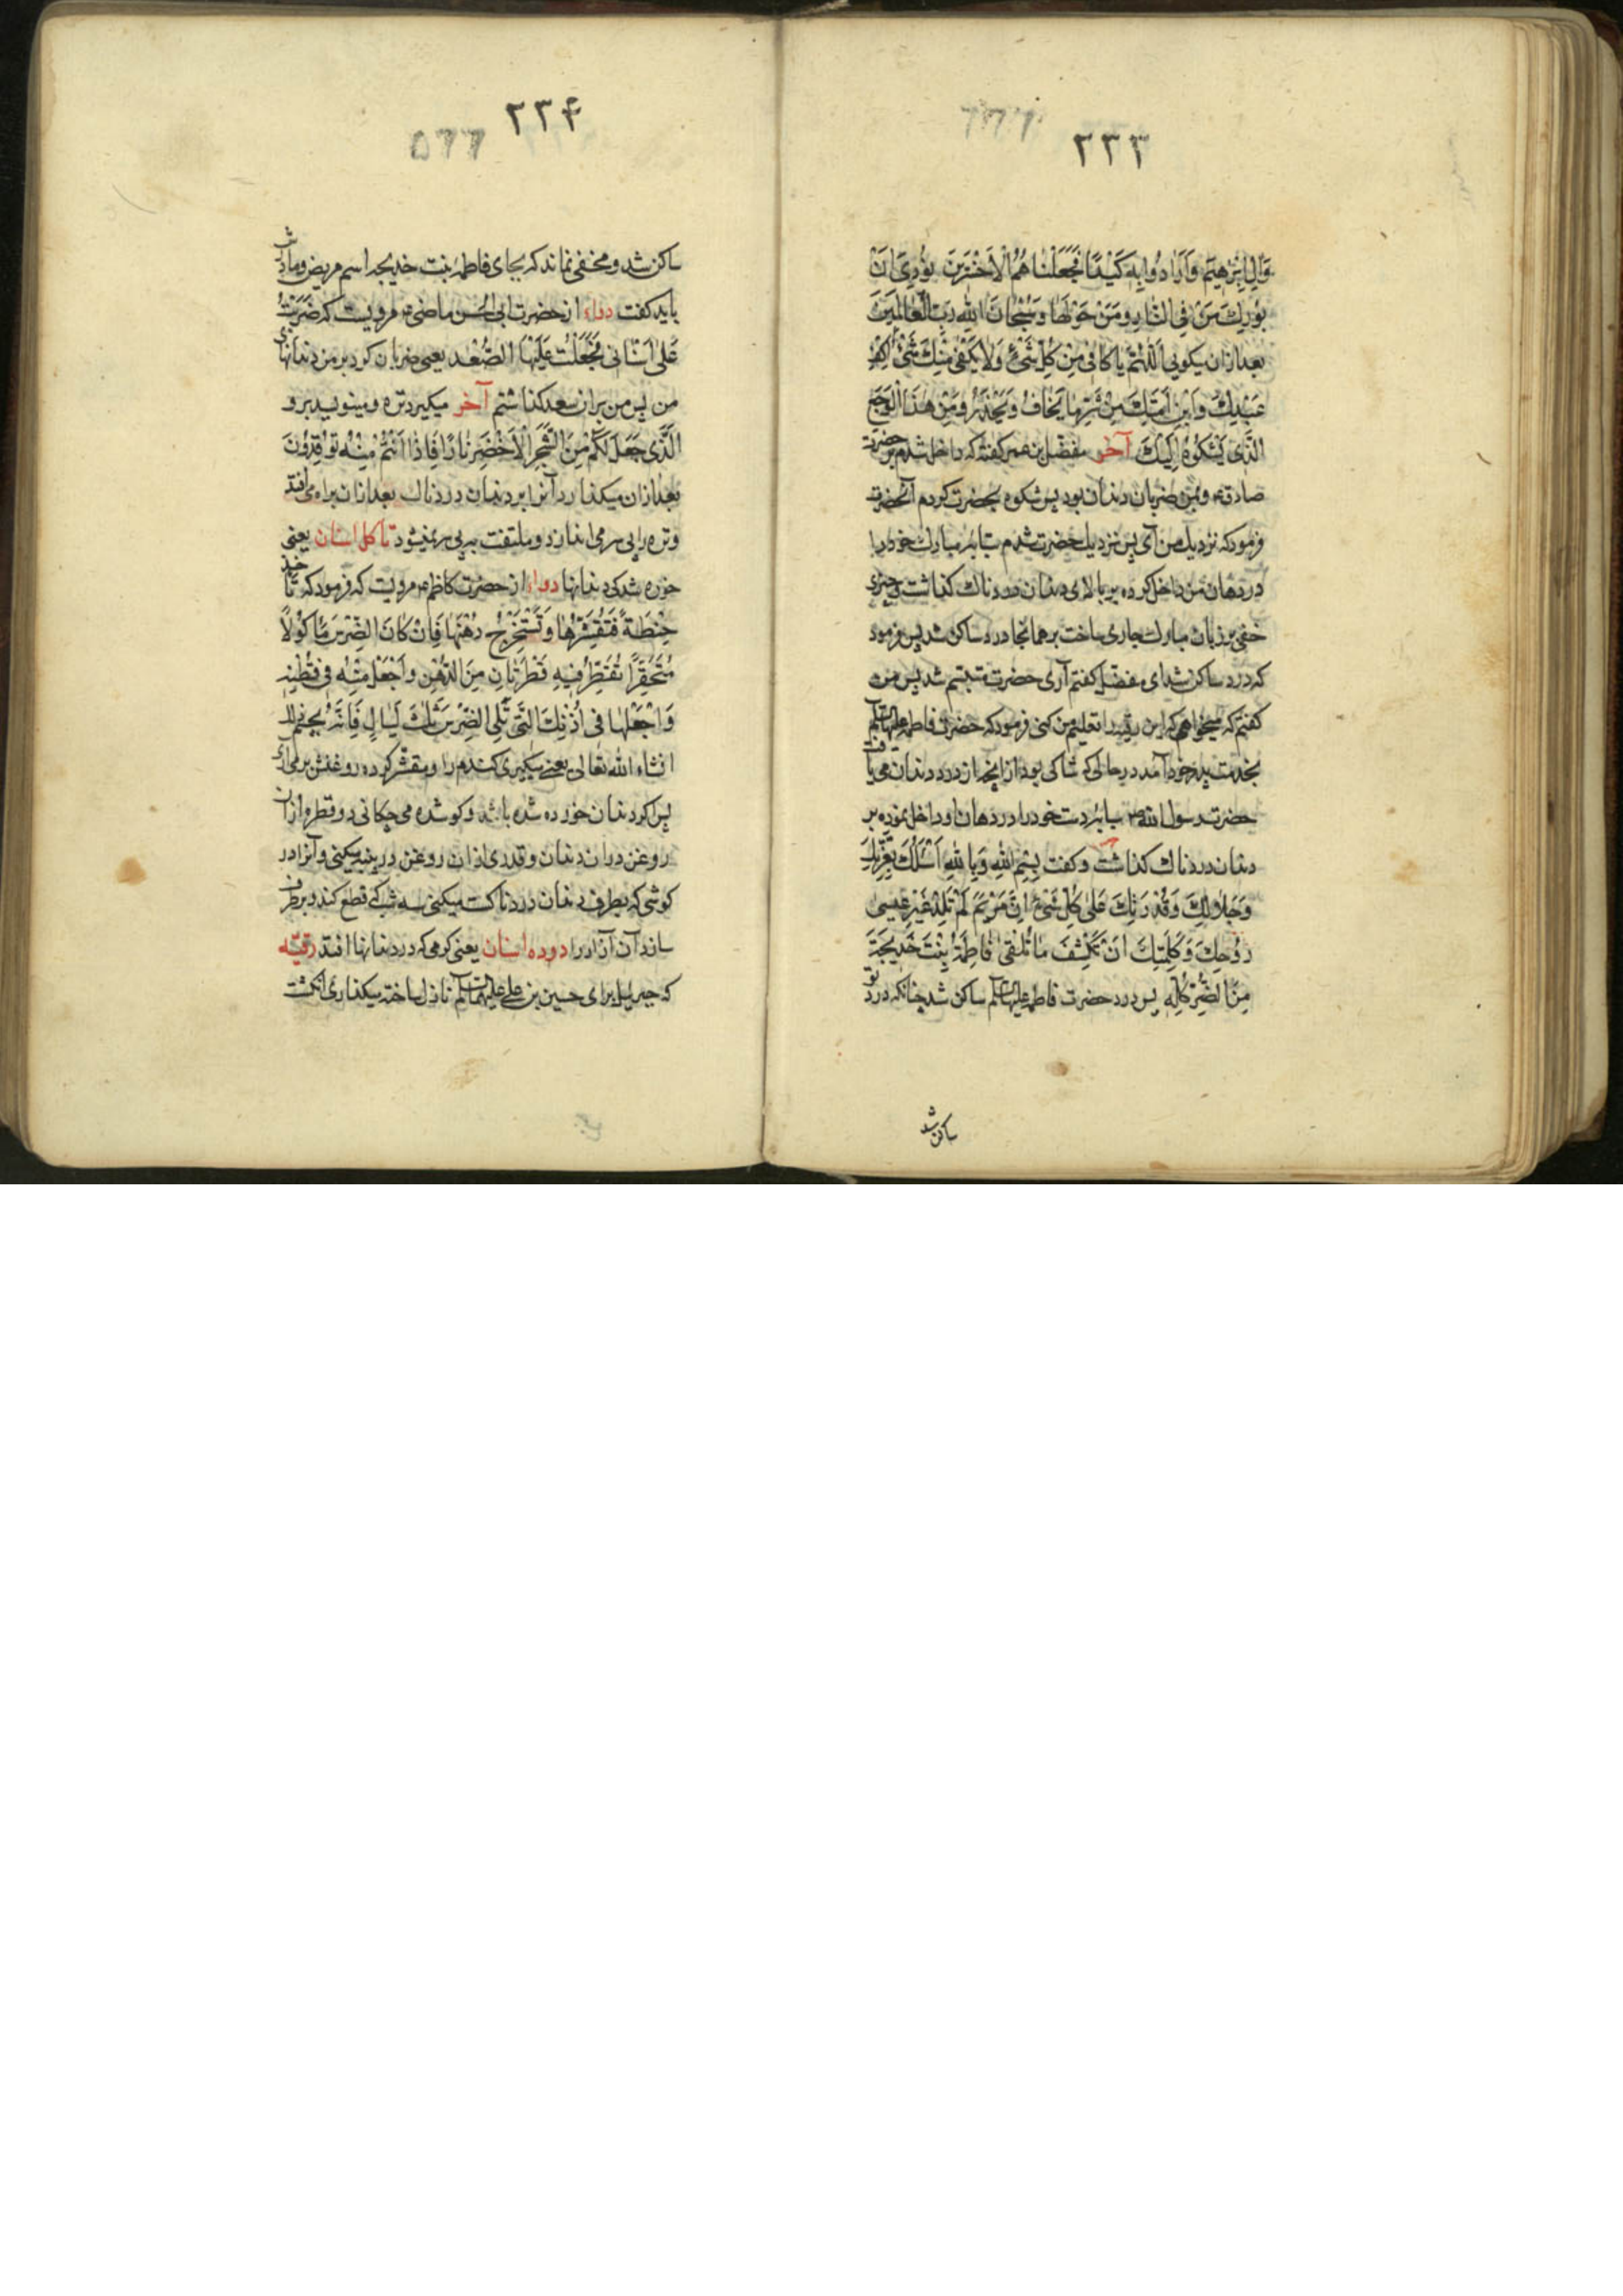 ۲۳۳
وَالِ اِبْرٰهیٖمَ وَاَرَادُوا بِهٖ کَیْدًا فَجَعَلْنَاهُمُ الْاَخْسَرِیَن نُوْدِیَ اَنْ
بُوْرِكَ مَنْ فِی النَّارِ وَمَنْ حَوْلَهَا وَسُبْحَانَ اللهِ رَبِّ الْعَالَمِیْنَ
بعدازان میکویی اَللّٰهُمَّ یَا کَافِیْ مِنْ کُلِّ شَیْءٍ وَلَا یَکْفِیْ مِنْكَ شَیْءٌ اِکْفِ
عَبْدِكَ وَابْنِ اَمَتِكَ مِنْ شَرِّ مَا یَخَافُ وَیَحْذَرُ وَمِنْ هٰذَا الْوَجَعِ
الَّذِی یَشْکُوْهُ اِلَیْكَ آخر مفضل بن عمر کفته که داخل شدم بر حضرت
صادق ع و بمن ضربان دندان بود پس شکوه بحضرت کردم آنحضرت
فرمود که نزدیك من آی پس نزدیك حضرت شدم سبابهٔ مبارك خود را
در دهان من داخل کرده بر بالای دندان دردناك کذاشت و چیزی
خفی بر زبان مبارك جاری ساخت بر همانجا درد ساکن شد پس فرمود
که درد ساکن شد ای مفضل کفتم آری حضرت متبسم شد پس من
کفتم که میخواهم که این رقیه را تعلیم من کنی فرمود که حضرت فاطمه علیها السلام
بخدمت پدر خود آمد در حالی که شاکی بود از آنچه از درد دندان می یافت
حضرت رسول الله ص سبابهٔ دست خود را در دهان او داخل نموده بر
دندان دردناك کذاشت و کفت بِسْمِ اللهِ وَبِاللهِ اَسْئَلُكَ بِعِزَّتِكَ
وَجَلَالِكَ وَقُدْرَتِكَ عَلٰی کُلِّ شَیْءٍ اِنَّ مَرْیَمَ لَمْ تَلِدْ غَیْرَ عِیسیٰ
رُوْحِكَ وَکَلِمَتِكَ اَنْ تَکْشِفَ مَا تَلْقیٰ فَاطِمَةُ بِنْتُ خَدِیجَةَ
مِنَ الضُّرِّ کُلِّهٖ پس درد حضرت فاطمه علیها السلام ساکن شد چنانکه درد تو
ساکن شد
۲۳۴
ساکن شد و مخفی نماند که بجای فاطمه بنت خدیجه اسم مریض و مادرش
باید کفت دواء از حضرت ابی الحسن ماضی ع مرویست که ضَرَبَتْ
عَلیٰ اَسْنَانِی فَجَعَلْتُ عَلَیْهَا السُّعْدَ یعنی ضربان کرد بر من دندانهای
من پس من بران سعد کذاشتم آخر میکیرد تره و مینویسد برو
الَّذِی جَعَلَ لَکُمْ مِنَ الشَّجَرِ الْاَخْضَرِ نَارًا فَاِذَا اَنْتُمْ مِنْهُ تُوْقِدُوْنَ
بعدازان میکذارد آنرا بر دندان دردناك بعدازان براه می افتد
و تره را پی سر می اندازد و ملتفت به پی سر نمیشود تأکل اسنان یعنی
خورده شدکی دندانها دواء از حضرت کاظم ع مرویست که فرمود که تأخذ
حِنْطَةً فَتُقَشِّرُهَا وَتَسْتَخْرِجُ دُهْنَهَا فَاِنْ کَانَ الضِّرْسُ مَأْکُوْلًا
مُنْحَفِرًا تُقَطِّرُ فِیْهِ قَطْرَتَانِ مِنَ الدُّهْنِ وَاجْعَلْ مِنْهُ فِی قُطْنَةٍ
وَاجْعَلْهَا فِی اُذُنِكَ الَّتِی تَلِی الضِّرْسَ ثَلٰثَ لَیَالٍ فَاِنَّهُ یَحْسِمُ ذٰلِكَ
انشاء الله تعالی یعنی میکیری کندم را و مقشر کرده روغنش بر می آری
پس اکر دندان خورده شده باشد و کو شده می چکانی دو قطره ازان
روغن دران دندان و قدری ازان روغن در پنبه میکنی و آنرا در
کوشی که بطرف دندان دردناکست میکنی سه شب که قطع کند و برطرف
سازد آن آزار را دوده اسنان یعنی کرمی که در دندانها افتد رقیه
که جبرییل برای حسین بن علی علیهما السلام نازل ساخته میکذاری انکشت